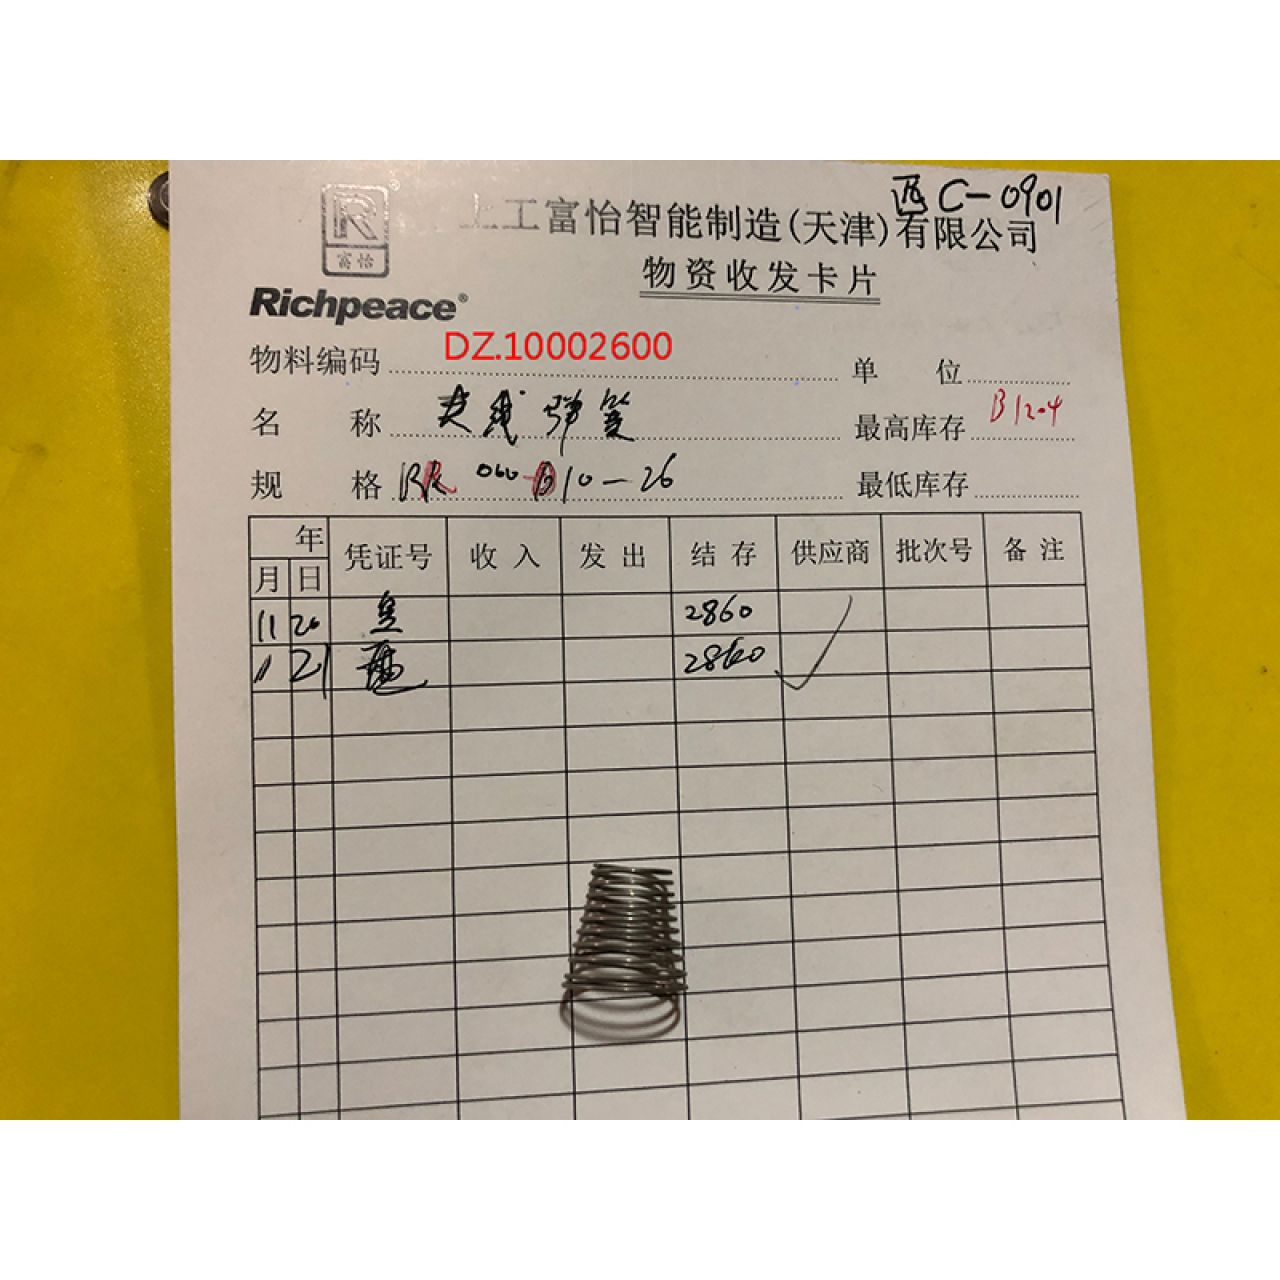 西C-0901
R
富怡
®
上工富怡智能制造(天津)有限公司
物资收发卡片
Richpeace®
物料编码 DZ.10002600 单 位
名 称 夹线弹簧 最高库存 B1204
规 格 10-26 最低库存
年
月 日 凭证号 收 入 发 出 结 存 供应商 批次号 备 注
11 20 2860
11 21 2860